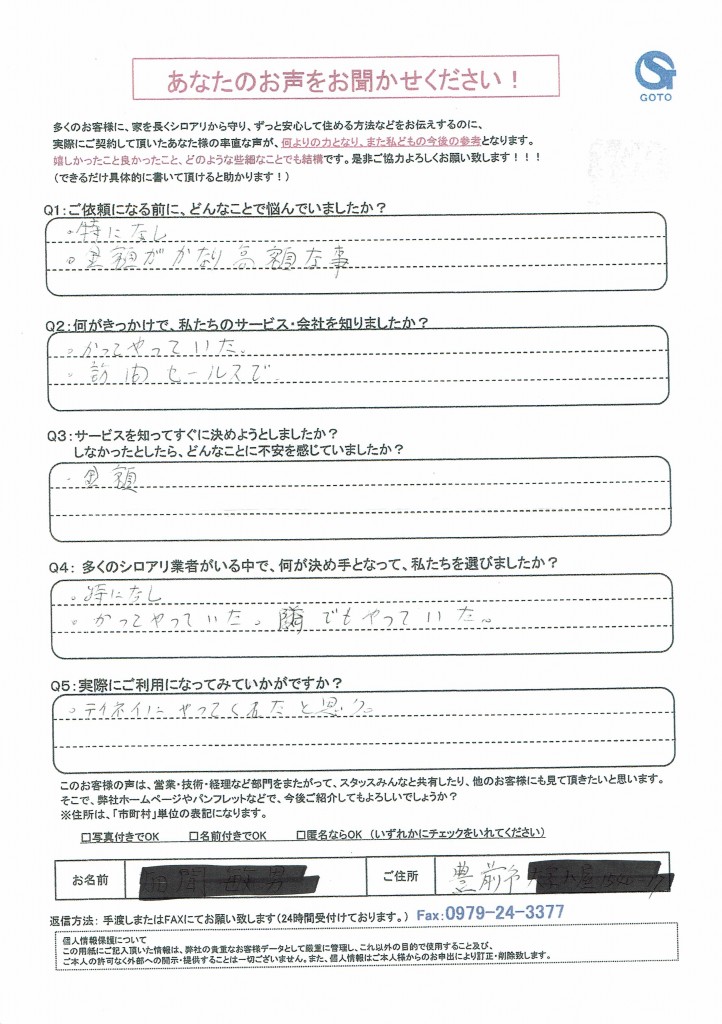 あなたのお声をお聞かせください！
GOTO
多くのお客様に、家を長くシロアリから守り、ずっと安心して住める方法などをお伝えするのに、
実際にご契約して頂いたあなた様の率直な声が、何よりの力となり、また私どもの今後の参考となります。
嬉しかったこと良かったこと、どのような些細なことでも結構です。是非ご協力よろしくお願い致します！！！
（できるだけ具体的に書いて頂けると助かります！）
Q1：ご依頼になる前に、どんなことで悩んでいましたか？
。特になし
。金額がかなり高額な事
Q2：何がきっかけで、私たちのサービス・会社を知りましたか？
。かつてやっていた。
。訪問セールスで
Q3：サービスを知ってすぐに決めようとしましたか？
しなかったとしたら、どんなことに不安を感じていましたか？
・金額
Q4： 多くのシロアリ業者がいる中で、何が決め手となって、私たちを選びましたか？
。特になし
。かつてやっていた。隣でもやっていた。
Q5：実際にご利用になってみていかがですか？
。テイネイにやってくれたと思う。
このお客様の声は、営業・技術・経理など部門をまたがって、スタッスみんなと共有したり、他のお客様にも見て頂きたいと思います。
そこで、弊社ホームページやパンフレットなどで、今後ご紹介してもよろしいでしょうか？
※住所は、「市町村」単位の表記になります。
□写真付きでOK □名前付きでOK □匿名ならOK （いずれかにチェックをいれてください）
お名前 ご住所 豊前市
返信方法： 手渡しまたはFAXにてお願い致します（24時間受付けております。） Fax：0979-24-3377
個人情報保護について
この用紙にご記入頂いた情報は、弊社の貴重なお客様データとして厳重に管理し、これ以外の目的で使用すること及び、
ご本人の許可なく外部への開示・提供することは一切ございません。また、個人情報はご本人様からのお申出により訂正・削除致します。